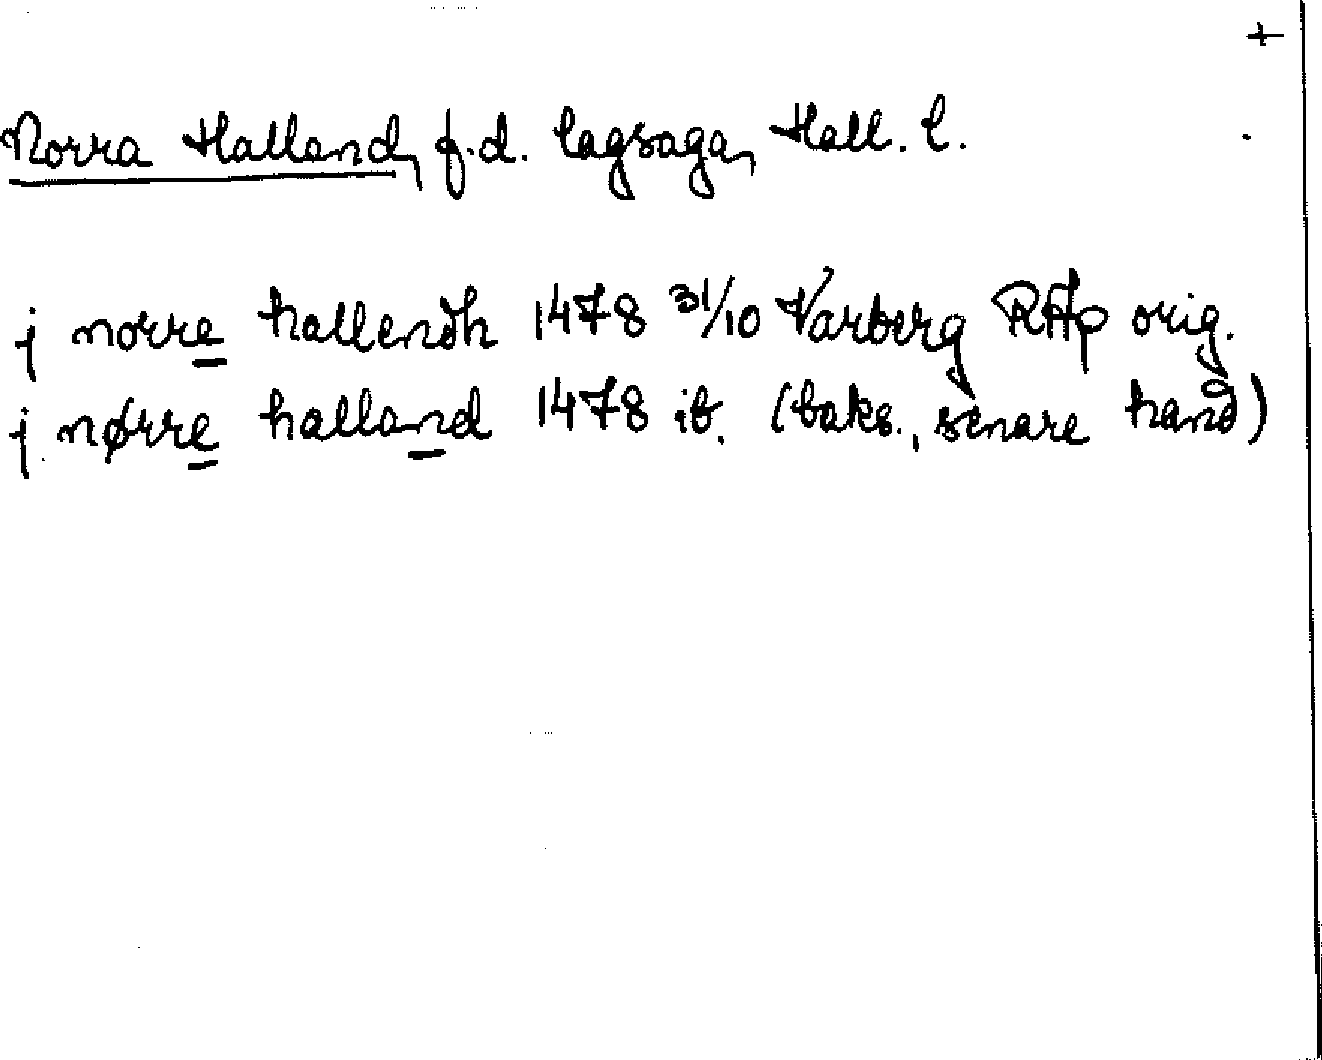 +
Norra Halland, f.d. lagsaga, Hall. l.
j norre hallendh 1478 31/10 Varberg RAp orig.
j nørre halland 1478 ib. (baks., senare hand)